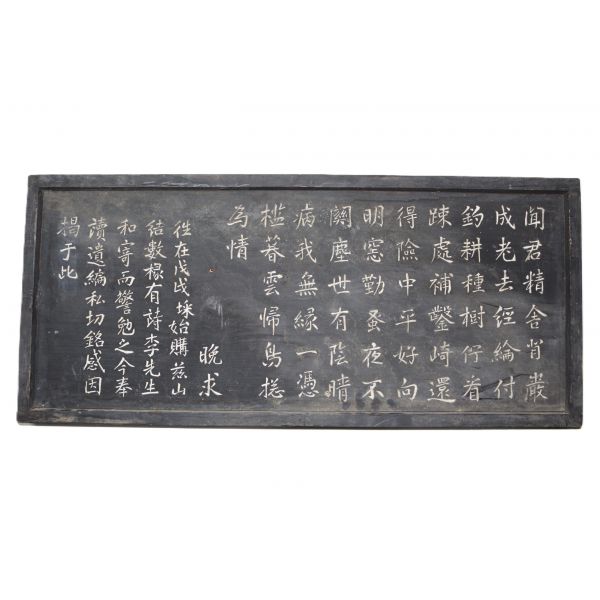 聞君精舍肖巖
成老去經綸付
釣耕種樹佇看
踈處補鑿崎還
得險中平好向
明窓勤蚤夜不
關塵世有陰晴
病我無緣一憑
檻暮雲歸鳥摠
為情
晚求
徃在戊戌埰始購玆山
結數椽有詩李先生
和寄而警勉之今奉
讀遺編私切銘感因
揭于此